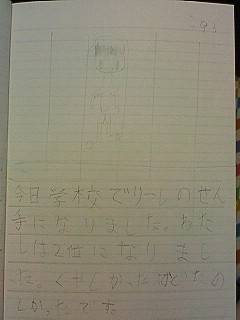 今日学校でリーレのせん
手になりました。わたし
しは2位になりまし
た。くやしかったけどたの
しかったです